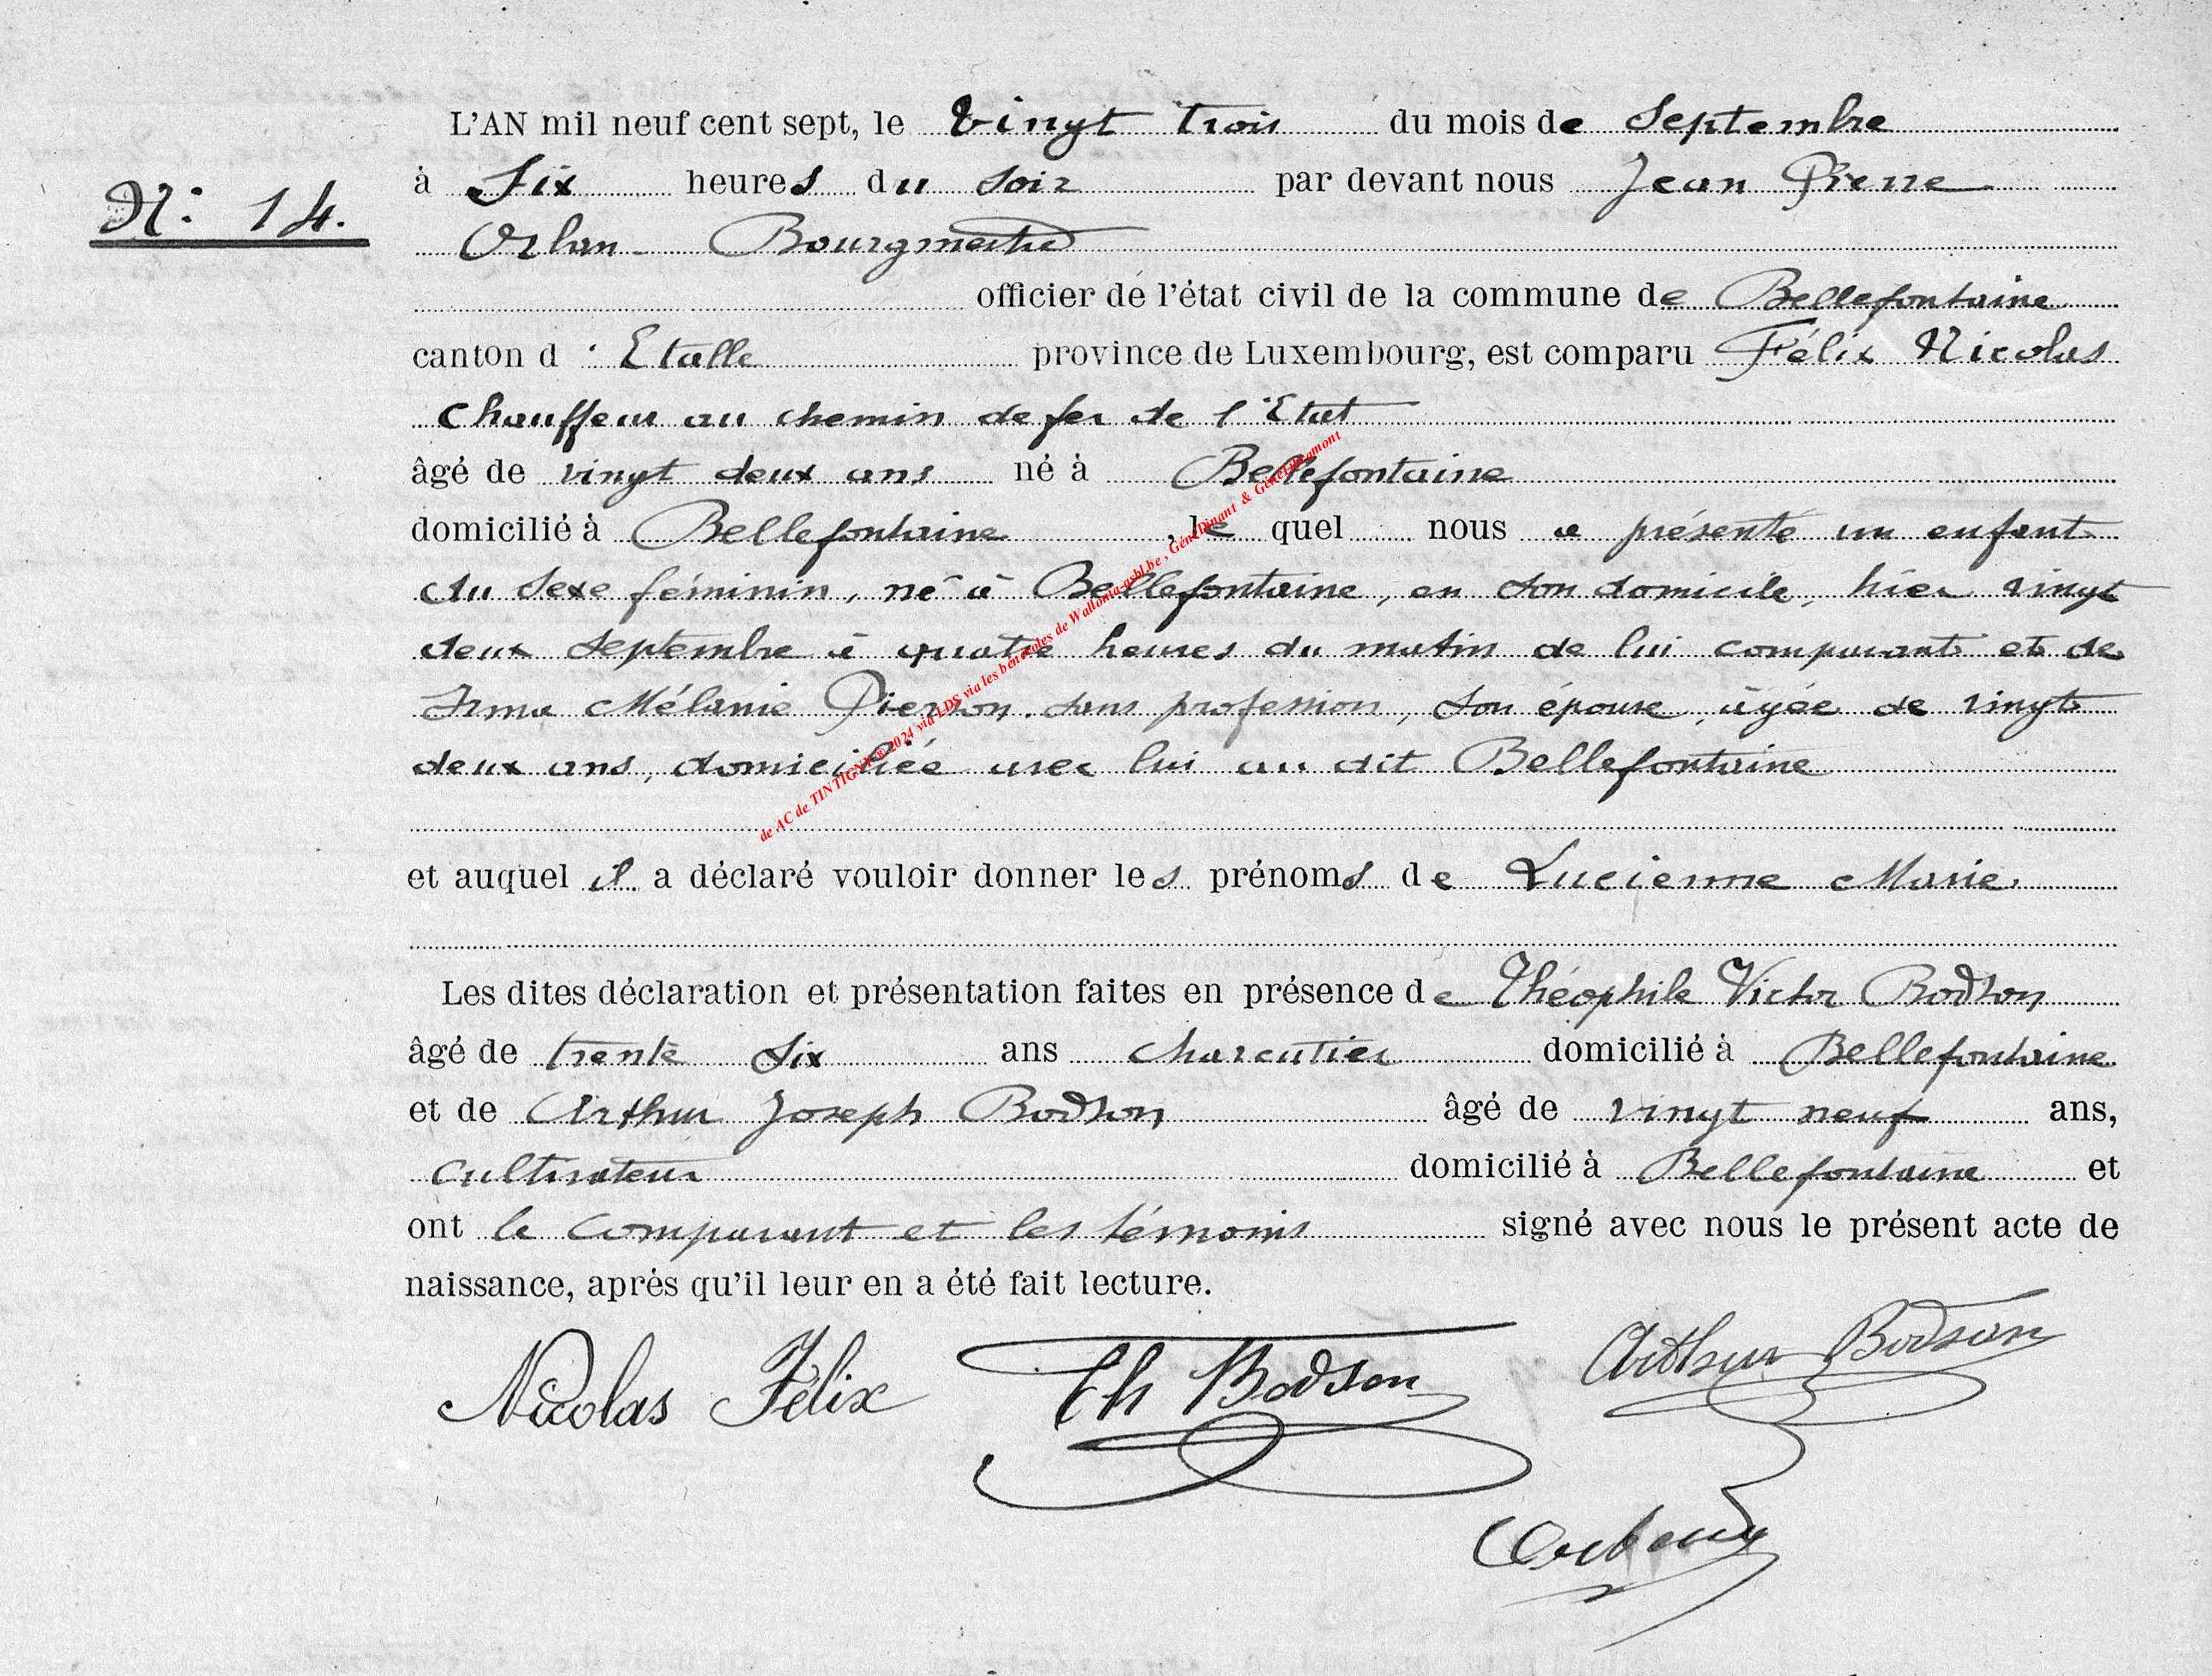 L'AN mil neuf cent sept, le vingt trois du mois de Septembre
à Six heures du soir par devant nous Jean Pierre
N° 14.
Orban Bourgmestre
officier de l'état civil de la commune de Bellefontaine
canton d'Etalle province de Luxembourg, est comparu Félix Nicolas
chauffeur au chemin de fer de l'Etat
âgé de vingt deux ans né à Bellefontaine
domicilié à Bellefontaine, lequel nous a présenté un enfant
du sexe féminin, né à Bellefontaine, en son domicile, hier vingt
deux septembre à quatre heures du matin de lui comparant et de
Irma Mélanie Pierson, sans profession, son épouse, âgée de vingt
deux ans, domiciliée avec lui au dit Bellefontaine
de AC de TINTIGNY © 2024 via LDS via les bénévoles de Wallonia-asbl.be, GénéDinant & GénéChagmont
et auquel il a déclaré vouloir donner les prénoms de Lucienne Marie.
Les dites déclaration et présentation faites en présence de Théophile Victor Bodson
âgé de trente six ans charcutier domicilié à Bellefontaine
et de Arthur Joseph Bodson âgé de vingt neuf ans,
cultivateur domicilié à Bellefontaine et
ont le comparant et les témoins signé avec nous le présent acte de
naissance, après qu'il leur en a été fait lecture.
Nicolas Félix Th Bodson Arthur Bodson
Orban